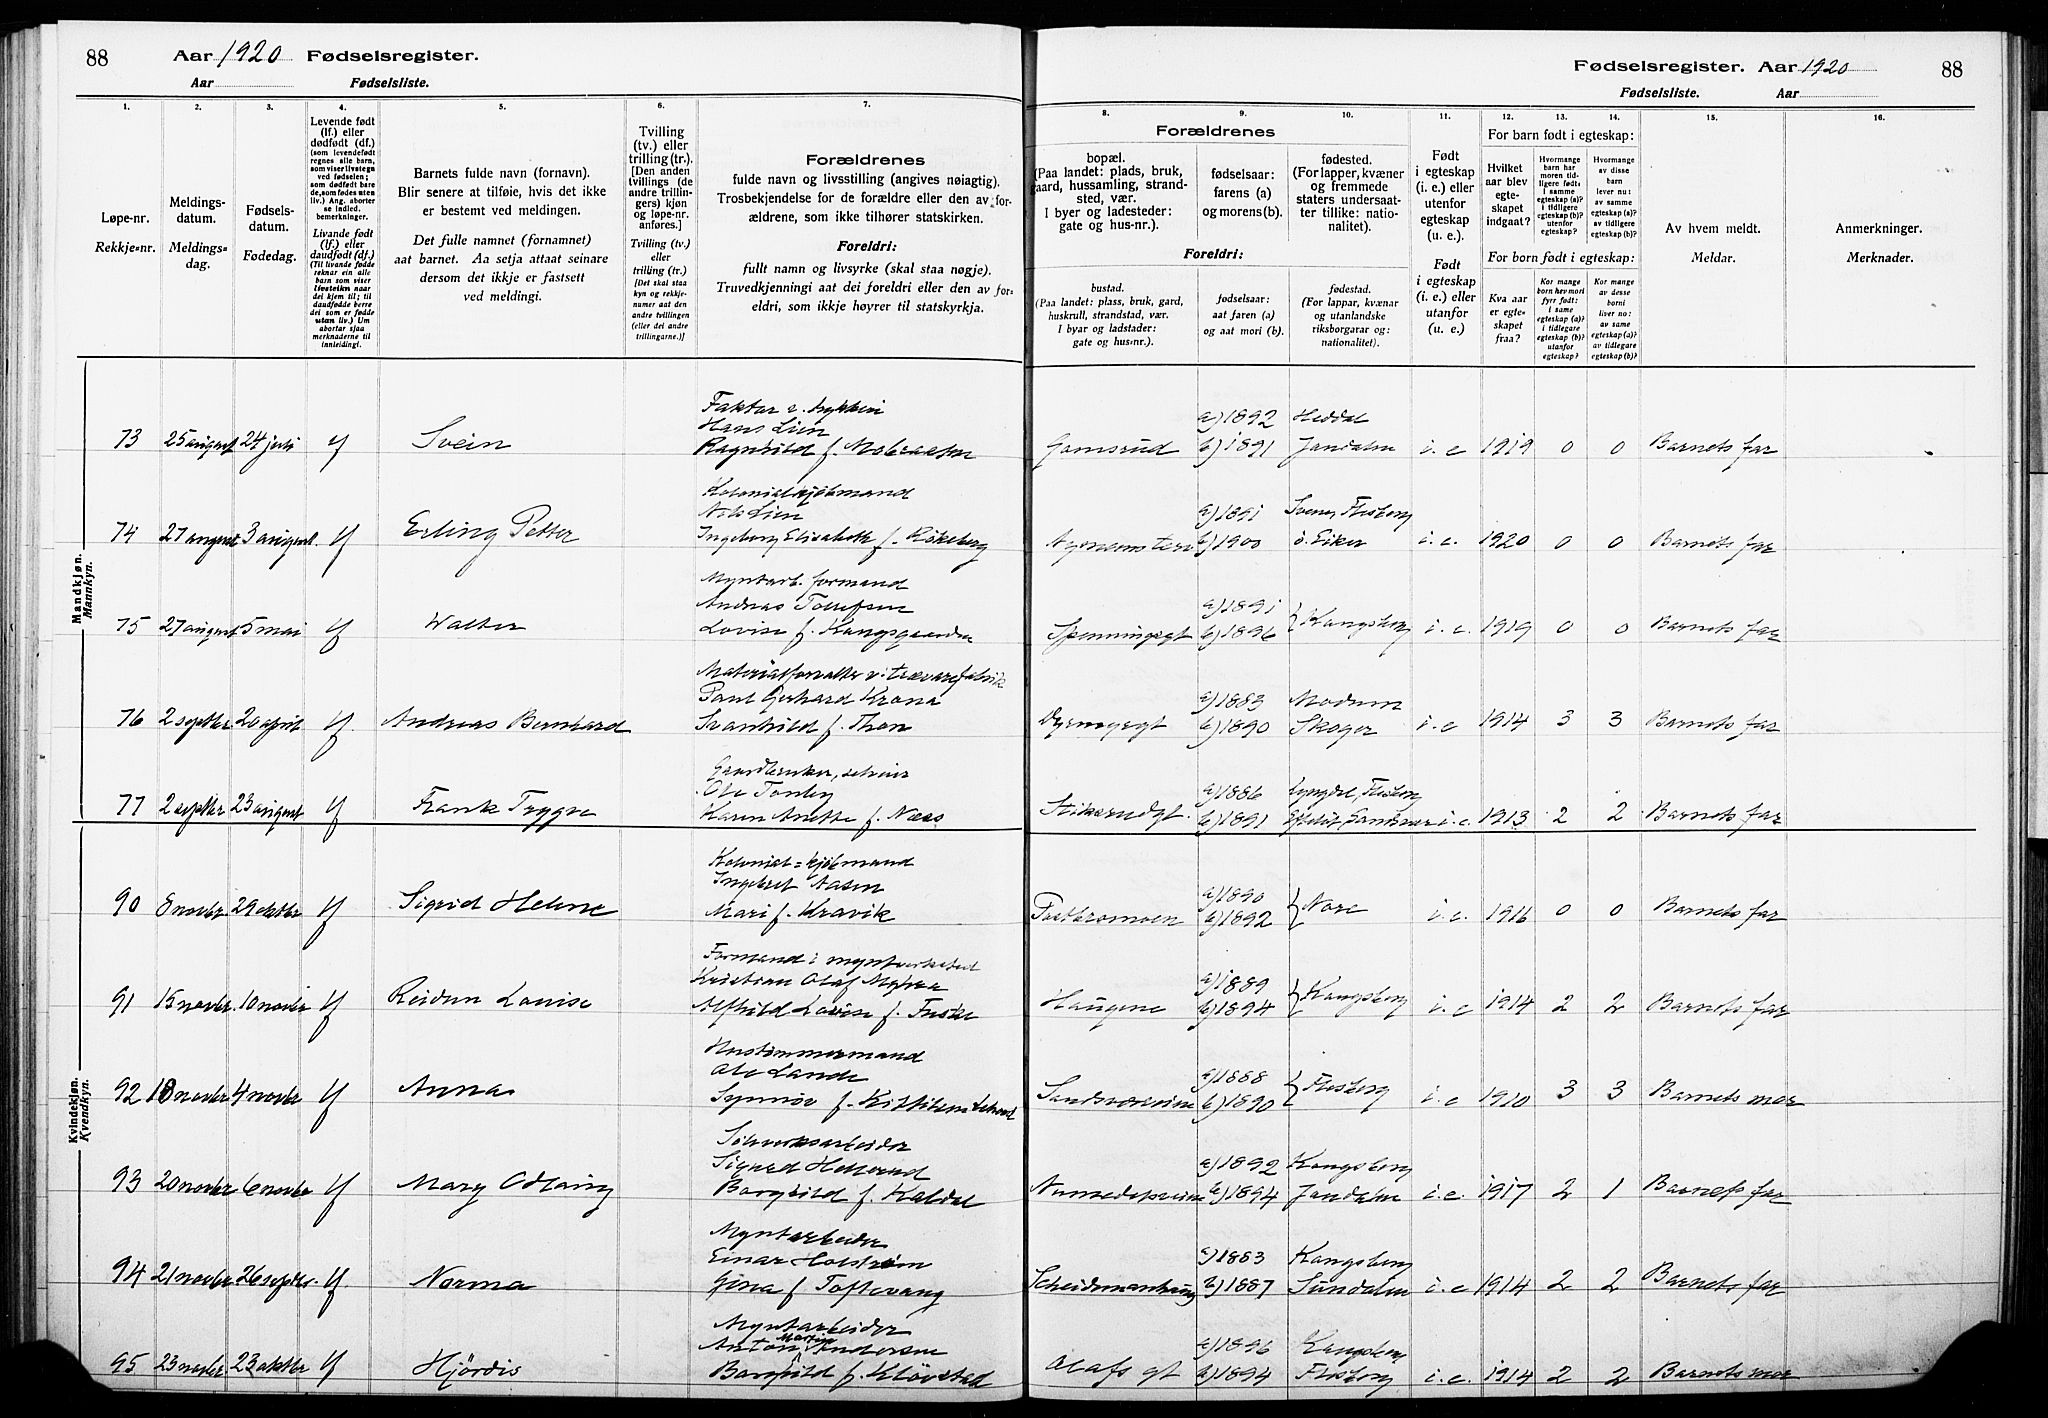 88
Aar 1920 Fødselsregister.
Aar Fødselsliste.
1. 2. 3. 4. 5. 6. 7.
Løpe-nr.
Rekkje-nr.
Meldings-
datum.
Meldings-
dag.
Fødsels-
datum.
Fødedag.
Levende født
(lf.) eller
dødfødt (df.)
(som levendefødt
regnes alle barn,
som viser livstegn
ved fødselen;
som dødfødt bare
de, som fødes uten
liv.) Ang. aborter
se indled.
bemerkninger.
Livande født
(lf.) eller
daudfødt (df.)
(Til livande fødde
reknar ein alle
barn som viser
livsteikn naar
dei kjem til; til
daudfødde berre
dei som er fødde
utan liv.) Um
abortar sjaa
merknaderne til
innleidingi.
Barnets fulde navn (fornavn).
Blir senere at tilføie, hvis det ikke
er bestemt ved meldingen.
Det fulle namnet (fornamnet)
aat barnet. Aa setja attaat seinare
dersom det ikkje er fastsett
ved meldingi.
Tvilling
(tv.) eller
trilling (tr.).
[Den anden
tvillings (de
andre trillin-
gers) kjøn
og løpe-nr.
anføres.]
Tvilling (tv.)
eller
trilling (tr.)
[Det skal staa
kyn og rekkje-
numer aat den
andre tvillingen
(eller dei andre
trillingarne.)]
Forældrenes
fulde navn og livsstilling (angives nøiagtig).
Trosbekjendelse for de forældre eller den av for-
ældrene, som ikke tilhører statskirken.
Foreldri:
fullt namn og livsyrke (skal staa nøgje).
Truvedkjenningi aat dei foreldri eller den av for-
eldri, som ikkje høyrer til statskyrkja.
Mandkjøn.
Mannkyn.
73 25 august 24 juli lf Svein
Hans Lien
Ragnhild f.
74 27 august 3 august lf Erling Petter
Kolonialkjøbmand
Nils Lien
Ingeborg Elisabeth f. Røkeberg
75 27 august 5 mai lf Walter
Myntarb. formand
Andreas Tollefsen
Lovise f. Kongsgaarden
76 2 septbr. 20 april lf. Andreas Bernhard
Materialforvalter v. trævarefabrik
Paul Gerhard Krona
Svanhild f. Thon
77 2 septbr 23 august lf Frank Trygve
Ole Tonby
Karen Anette f. Næss
Kvindekjøn.
Kvendkyn.
90 8 novbr. 29 oktbr lf Sigrid Helene
Kolonial-kjøbmand
Ingebret Aasen
Mari f. Kravik
91 15 novbr. 10 novbr lf Reidun Lovise
Formand i myntverksted
Kristian Olaf Myhra
Alfhild Lovise f. Fuske
92 18 novbr. 4 novbr lf Anna
Hustømmermand
Ole Lande
Synnøv f. Kittilsen
93 20 novbr 6 novbr lf Mary Odlaug
Sølvverksarbeider
Sigurd Hellerud
Borghild f. Kaldal
94 21 novbr 26 septbr. lf. Norma
Myntarbeider
Einar Holstrøm
Gina f. Toftevang
95 23 novbr. 23 oktbr lf Hjørdis
Myntarbeider
Anton Martin Andersen
Borghild f. Kløvstad
Fødselsregister. Aar 1920 88
Fødselsliste. Aar
8. 9. 10. 11. 12. 13. 14. 15. 16.
Forældrenes
bopæl.
(Paa landet: plads, bruk,
gaard, hussamling, strand-
sted, vær.
I byer og ladesteder:
gate og hus-nr.).
fødselsaar:
farens (a)
og morens (b).
fødested.
(For lapper, kvæner
og fremmede
staters undersaat-
ter tillike: natio-
nalitet).
Foreldri:
bustad.
(Paa landet: plass, bruk, gard,
huskrull, strandstad, vær.
I byar og ladstader:
gate og hus-nr.).
fødselsaar:
aat faren (a)
og aat mori (b).
fødestad.
(For lappar, kvænar
og utanlandske
riksborgarar og:
nationalitet).
Født
i egteskap
(i. e.) eller
utenfor
egteskap
(u. e.).
Født
i egteskap
(i. e.) eller
utanfor
(u. e.)
For barn født i egteskap:
Hvilket
aar blev
egte-
skapet
indgaat?
Hvormange
barn har
moren tid-
ligere født:
i samme
egteskap (a)?
i tidligere
egteskap (b)?
utenfor
egteskap?
Hvormange
av disse
barn
lever nu:
av samme
egteskap (a)?
av tidligere
egteskap (b)?
For born født i egteskap:
Kva aar
er egte-
skapet
fraa?
Kor mange
born hev mori
fyrr født:
i same
egteskap (a)?
i tidlegare
egteskap (b)?
utanfor
egteskap?
Kor mange
av desse
borni
liver no:
av same
egteskap (a)?
av tidlegare
egteskap (b)?
Av hvem meldt.
Meldar.
Anmerkninger.
Merknader.
a) 1892 Heddal
Gomsrud b) 1891 Jondalen i. e 1919 0 0 Barnets far
a) 1891 Svene, Flesberg
b) 1900 ø. Eiker i. e. 1920 0 0 Barnets far
a) 1891
Spenningsgt b) 1896 Kongsberg i. e. 1919 0 0 Barnets far
a) 1883 Modum
Dyrmyrgt b) 1890 Skoger i. e 1914 3 3 Barnets far
a) 1886 Lyngdal, Flesberg
Stikkerudgt. b) 1891 Efteløt, Sandsvær i. e. 1913 2 2 Barnets far
a) 1890
b) 1892 Nore i. e. 1916 0 0 Barnets far
a) 1889
Haugene b) 1894 Kongsberg i. e 1914 2 2 Barnets far
a) 1888
Sandsværveien b) 1890 Flesberg i. e 1910 3 3 Barnets mor
a) 1892 Kongsberg
Numedalsveien b) 1894 Jondalen i. e. 1917 2 1 Barnets far
a) 1883 Kongsberg
b) 1887 i. e 1914 2 2 Barnets far
a) 1896 Kongsberg
Olafs gt b) 1894 Flesberg i. e. 1914 2 2 Barnets mor